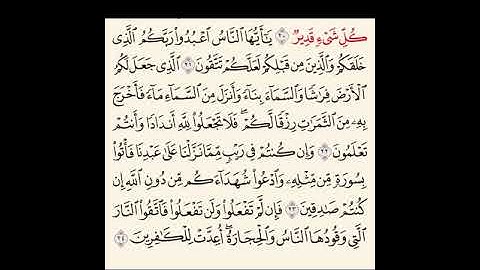 كُلِّ شَىْءٍ قَدِيرٌ ٢٠ يَٰٓأَيُّهَا ٱلنَّاسُ ٱعْبُدُوا۟ رَبَّكُمُ ٱلَّذِى
خَلَقَكُمْ وَٱلَّذِينَ مِن قَبْلِكُمْ لَعَلَّكُمْ تَتَّقُونَ ٢١ ٱلَّذِى جَعَلَ لَكُمُ
ٱلْأَرْضَ فِرَٰشًا وَٱلسَّمَآءَ بِنَآءً وَأَنزَلَ مِنَ ٱلسَّمَآءِ مَآءً فَأَخْرَجَ
بِهِۦ مِنَ ٱلثَّمَرَٰتِ رِزْقًا لَّكُمْ ۖ فَلَا تَجْعَلُوا۟ لِلَّهِ أَندَادًا وَأَنتُمْ
تَعْلَمُونَ ٢٢ وَإِن كُنتُمْ فِى رَيْبٍ مِّمَّا نَزَّلْنَا عَلَىٰ عَبْدِنَا فَأْتُوا۟
بِسُورَةٍ مِّن مِّثْلِهِۦ وَٱدْعُوا۟ شُهَدَآءَكُم مِّن دُونِ ٱللَّهِ إِن
كُنتُمْ صَٰدِقِينَ ٢٣ فَإِن لَّمْ تَفْعَلُوا۟ وَلَن تَفْعَلُوا۟ فَٱتَّقُوا۟ ٱلنَّارَ
ٱلَّتِى وَقُودُهَا ٱلنَّاسُ وَٱلْحِجَارَةُ ۖ أُعِدَّتْ لِلْكَٰفِرِينَ ٢٤